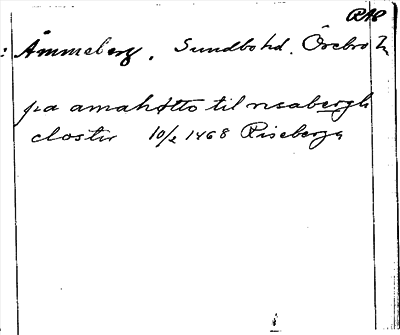 RAP
: Åmmeberg, Sundbo hd. Örebro l.
pa amahøtto til risabergh
closter 10/2 1468 Riseberga